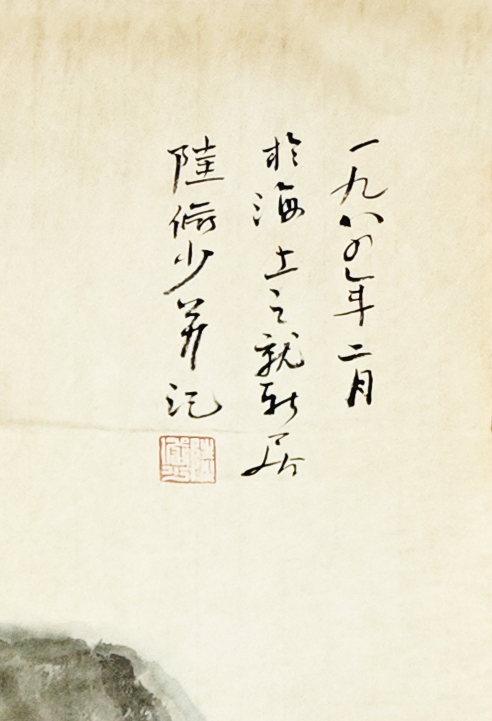 一九八四年二月
於海上之就新居
陸儼少并記